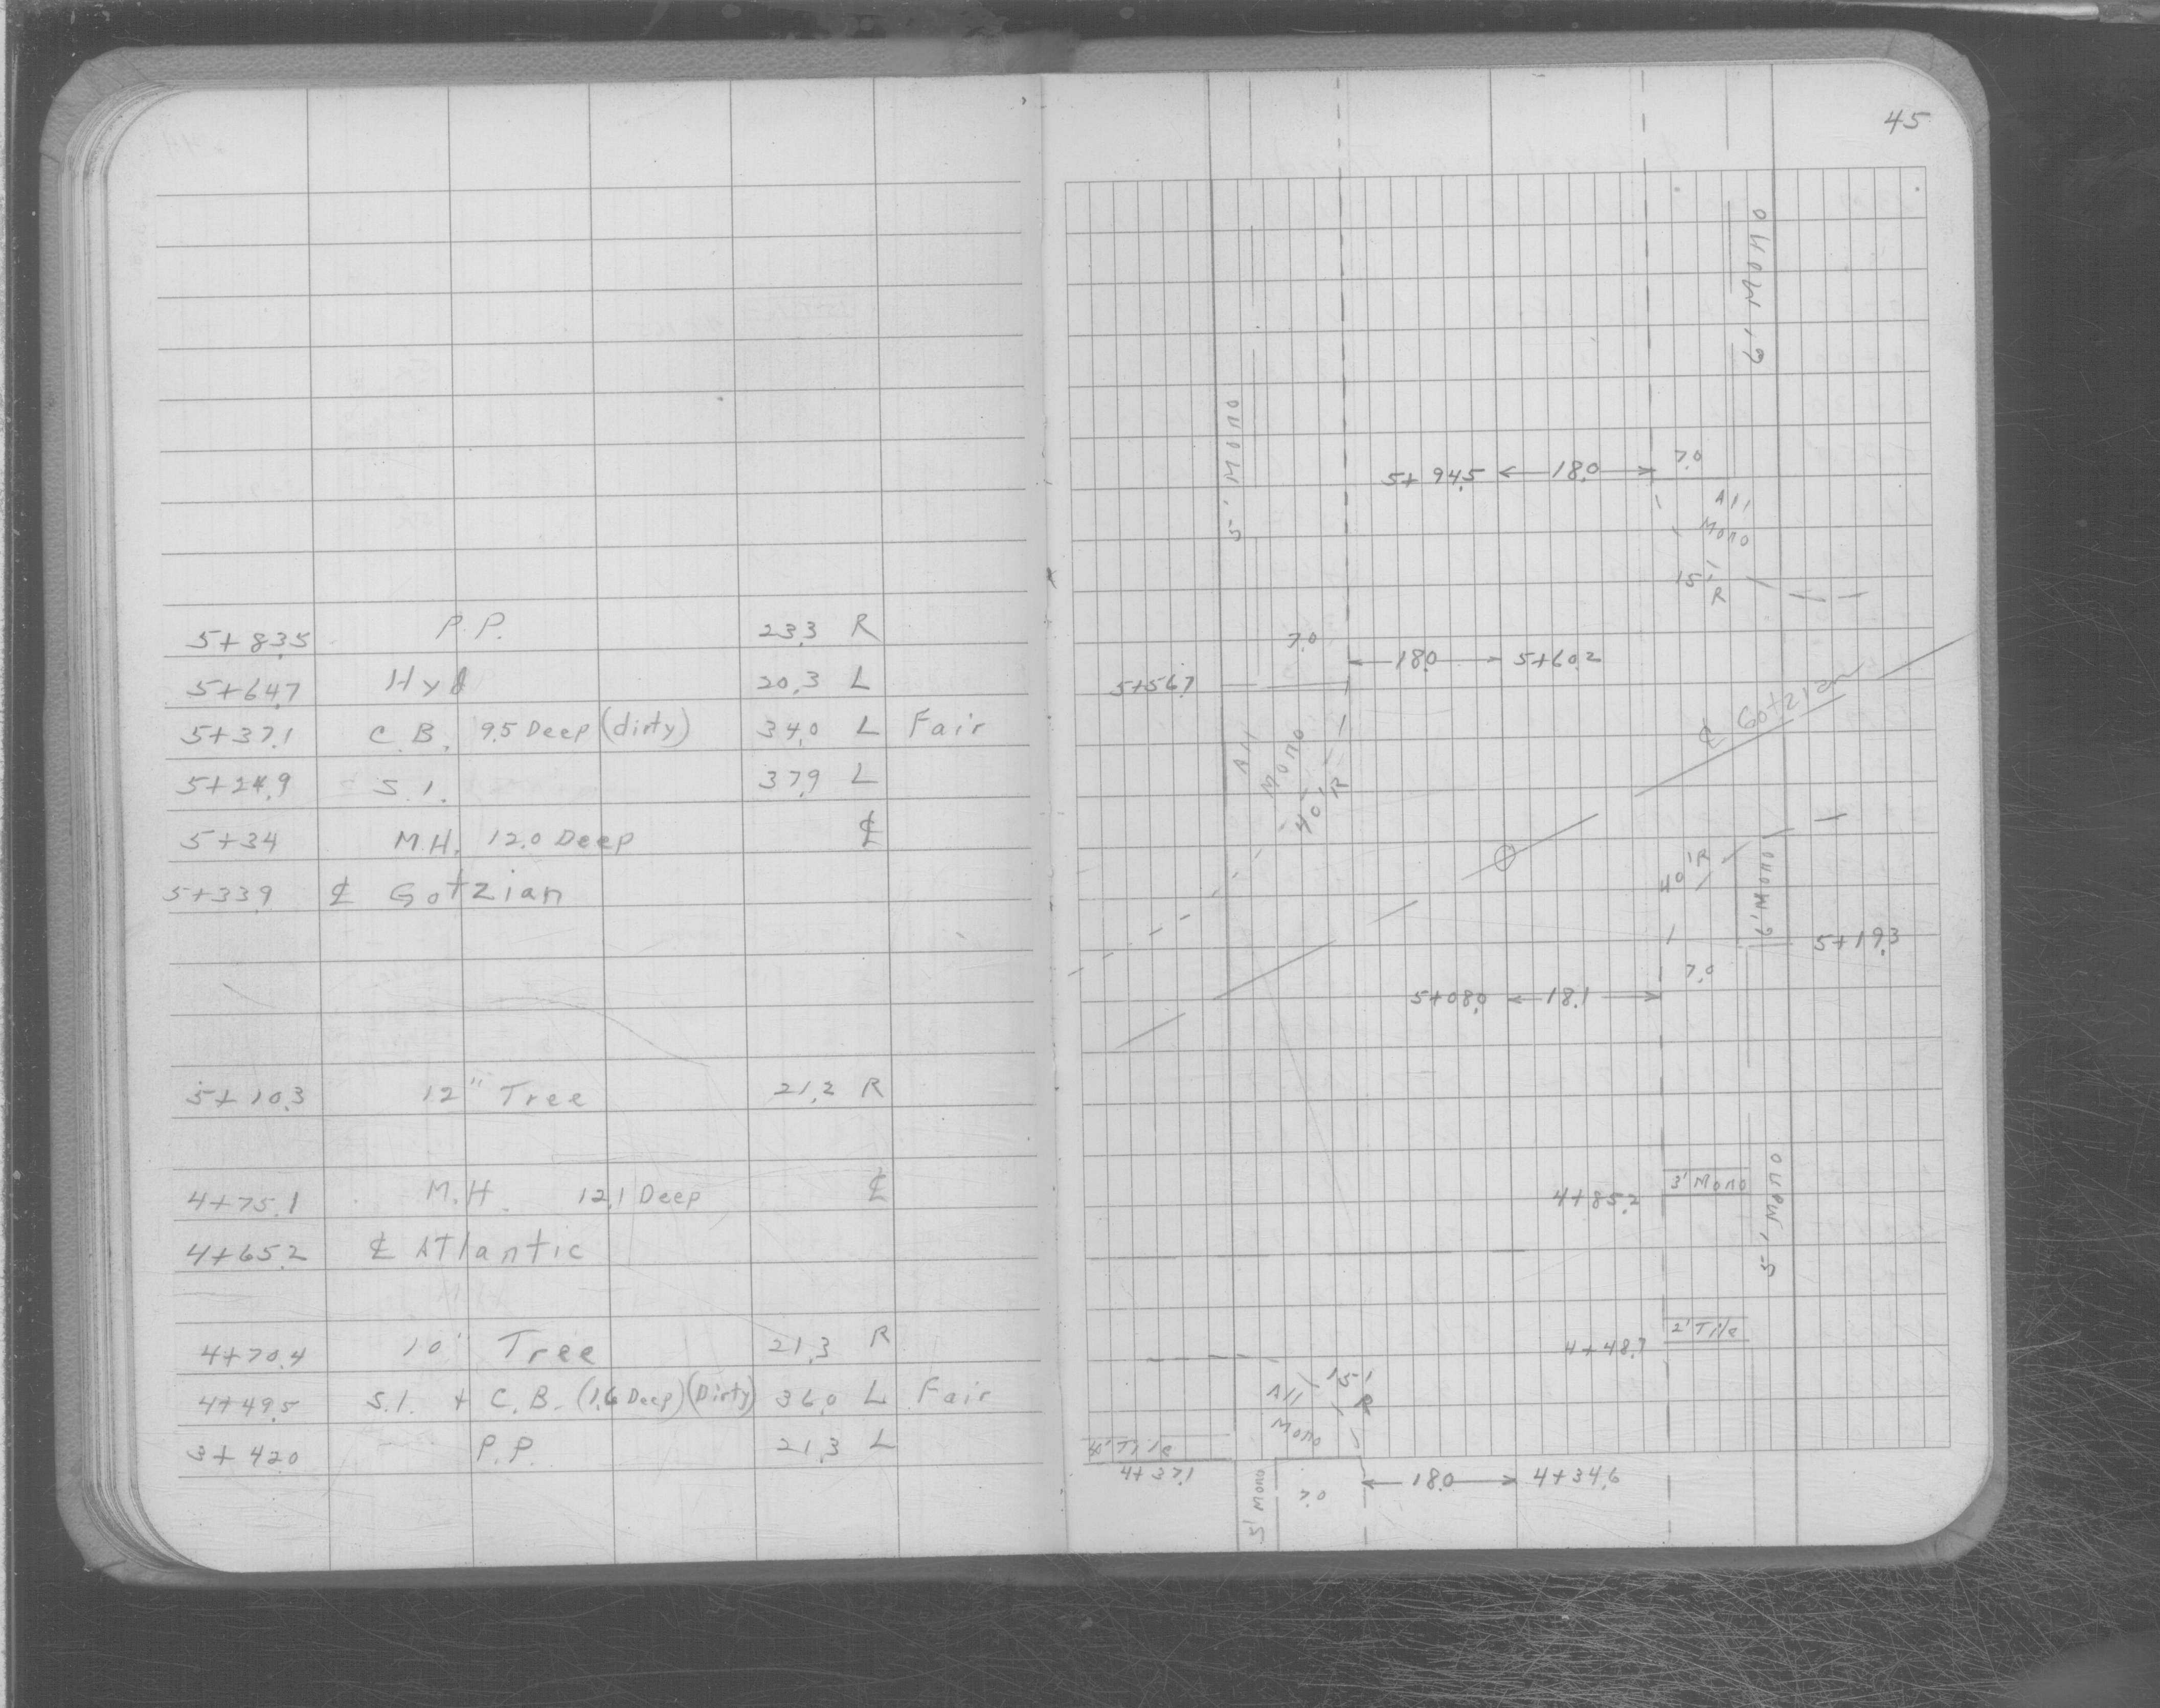 5+83.5 P.P. 23.3 R
5+64.7 Hyd 20.3 L
5+37.1 C.B. 9.5 Deep (dirty) 34.0 L Fair
5+24.9 S.I. 37.9 L
5+34 M.H. 12.0 Deep ℄
5+33.9 ℄ Gotzian
5+10.3 12" Tree 21.2 R
4+75.1 M.H. 12.1 Deep ℄
4+65.2 ℄ Atlantic
4+70.4 10" Tree 21.3 R
4+49.5 S.I. + C.B. (1.6 Deep) (Dirty) 36.0 L Fair
3+42.0 P.P. 21.3 L
45
6' Mono
5' Mono
5+94.5 ← 18.0 → 7.0
All
Mono
15'
R
7.0
← 18.0 → 5+60.2
5+56.7
℄ Gotzian
All
Mono
40'
R
40' R
6' Mono
5+19.3
7.0
5+08.0 ← 18.1 →
3' Mono
4+85.2
5' Mono
2' Tile
4+48.7
15'
All R
Mono
Tile
4+37.1
5' Mono
7.0 ← 18.0 → 4+34.6